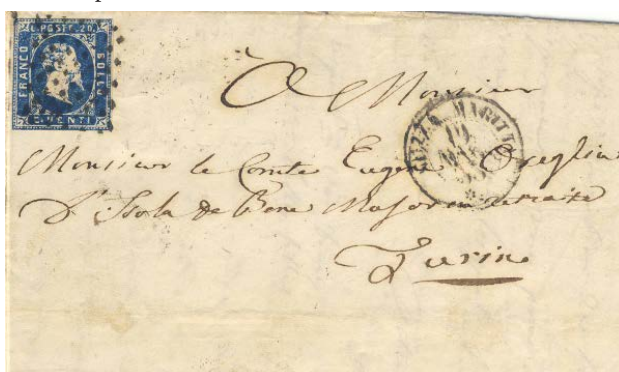 C. POSTE 20
FRANCO
BOLLO
CENTI
A Monsieur
NIZZA MARITT
Monsieur le Comte Eugène Oreglia
d'Isola de Bene Major en retraite
Turin